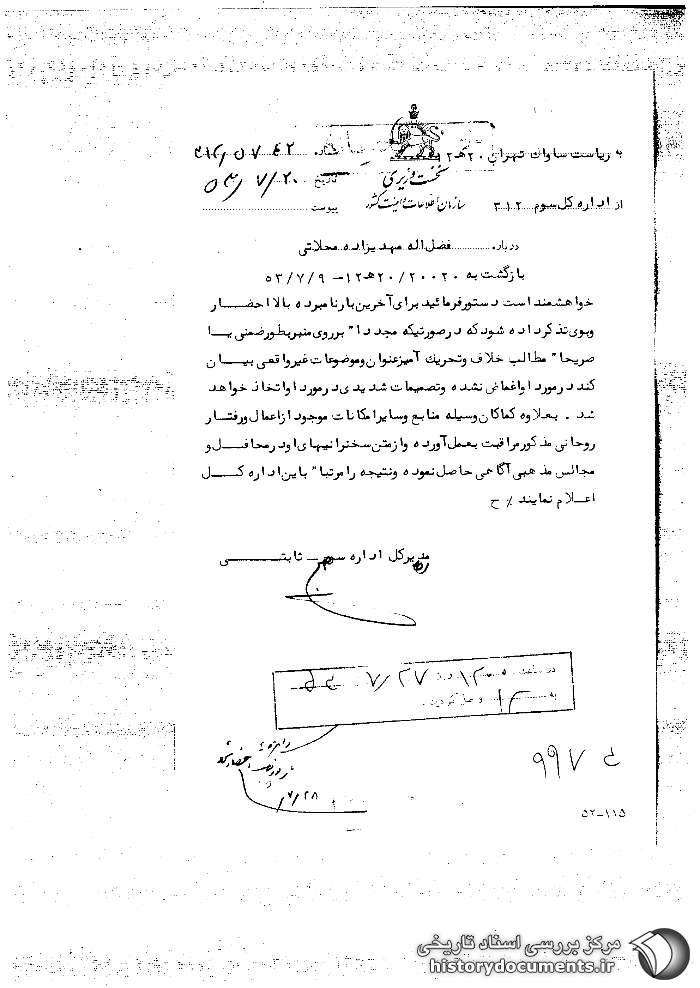 به ریاست ساواک تهران ۲۰هـ۱۲
شماره ۳۱۲/۵۷۴۲
نخست وزیری
تاریخ ۵۳/۷/۲۰
از اداره کل سوم ۳۱۲
سازمان اطلاعات و امنیت کشور
پیوست
درباره فضل‌اله مهدیزاده محلاتی
بازگشت به ۲۰۰۲۰/۲۰هـ۱۲-۵۳/۷/۹
خواهشمند است دستور فرمائید برای آخرین بار نامبرده بالا احضار
وبوی تذکر داده شود که درصورتیکه مجددا" برروی منبر بطور ضمنی یا
صریحا" مطالب خلاف وتحریک آمیز عنوان وموضوعات غیرواقعی بیان
کند درمورد او اغماض نشده وتصمیمات شدیدی درمورد او اتخاذ خواهد
شد . بعلاوه کماکان وسیله منابع وسایر امکانات موجود از اعمال ورفتار
روحانی مذکور مراقبت بعمل آورده واز متن سخنرانیهای او در محافل و
مجالس مذهبی آگاهی حاصل نموده ونتیجه را مرتبا" باین اداره کل
اعلام نمایند ٪ ح
مدیرکل اداره سوم ـ ثابتی
در ساعت روز ۷/۲۷
به ۱۳ واصل گردید.
۷/۲۸
۹۹۷
۵۲-۱۱۵
مرکز بررسی اسناد تاریخی
historydocuments.ir